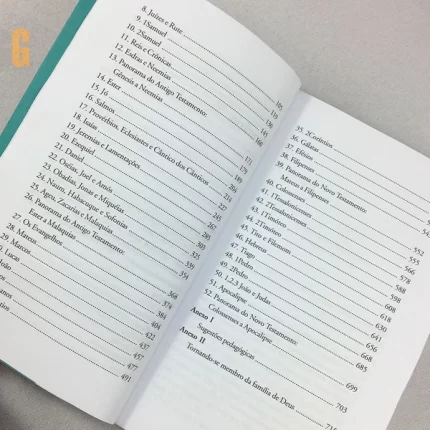 G
8. Juízes e Rute
9. 1Samuel
10. 2Samuel
11. Reis e Crônicas
12. Esdras e Neemias
13. Panorama do Antigo Testamento:
Gênesis a Neemias
14. Ester
15. Jó
16. Salmos
17. Provérbios, Eclesiastes e Cântico dos Cânticos
18. Isaías
19. Jeremias e Lamentações
20. Ezequiel
21. Daniel
22. Oseias, Joel e Amós
23. Obadias, Jonas e Miquéias
24. Naum, Habacuque e Sofonias
25. Ageu, Zacarias e Malaquias
26. Panorama do Antigo Testamento:
Ester a Malaquias
27. Os Evangelhos
28. Mateus
29. Marcos
Lucas
João
368
374
384
404
422
437
457
477
491
35. 2Coríntios
36. Gálatas
37. Efésios
38. Filipenses
39. Panorama do Novo Testamento:
Mateus a Filipenses
40. Colossenses 552
41. 1Tessalonicenses 555
42. 2Tessalonicenses 566
43. 1Timóteo 578
44. 2Timóteo 588
45. Tito e Filemom 598
46. Hebreus 608
47. Tiago 618
48. 1Pedro 630
49. 2Pedro 641
50. 1,2,3 João e Judas 656
51. Apocalipse 668
52. Panorama do Novo Testamento:
Colossenses a Apocalipse 685
Anexo I
Sugestões pedagógicas 699
Anexo II
Tornando-se membro da família de Deus 703